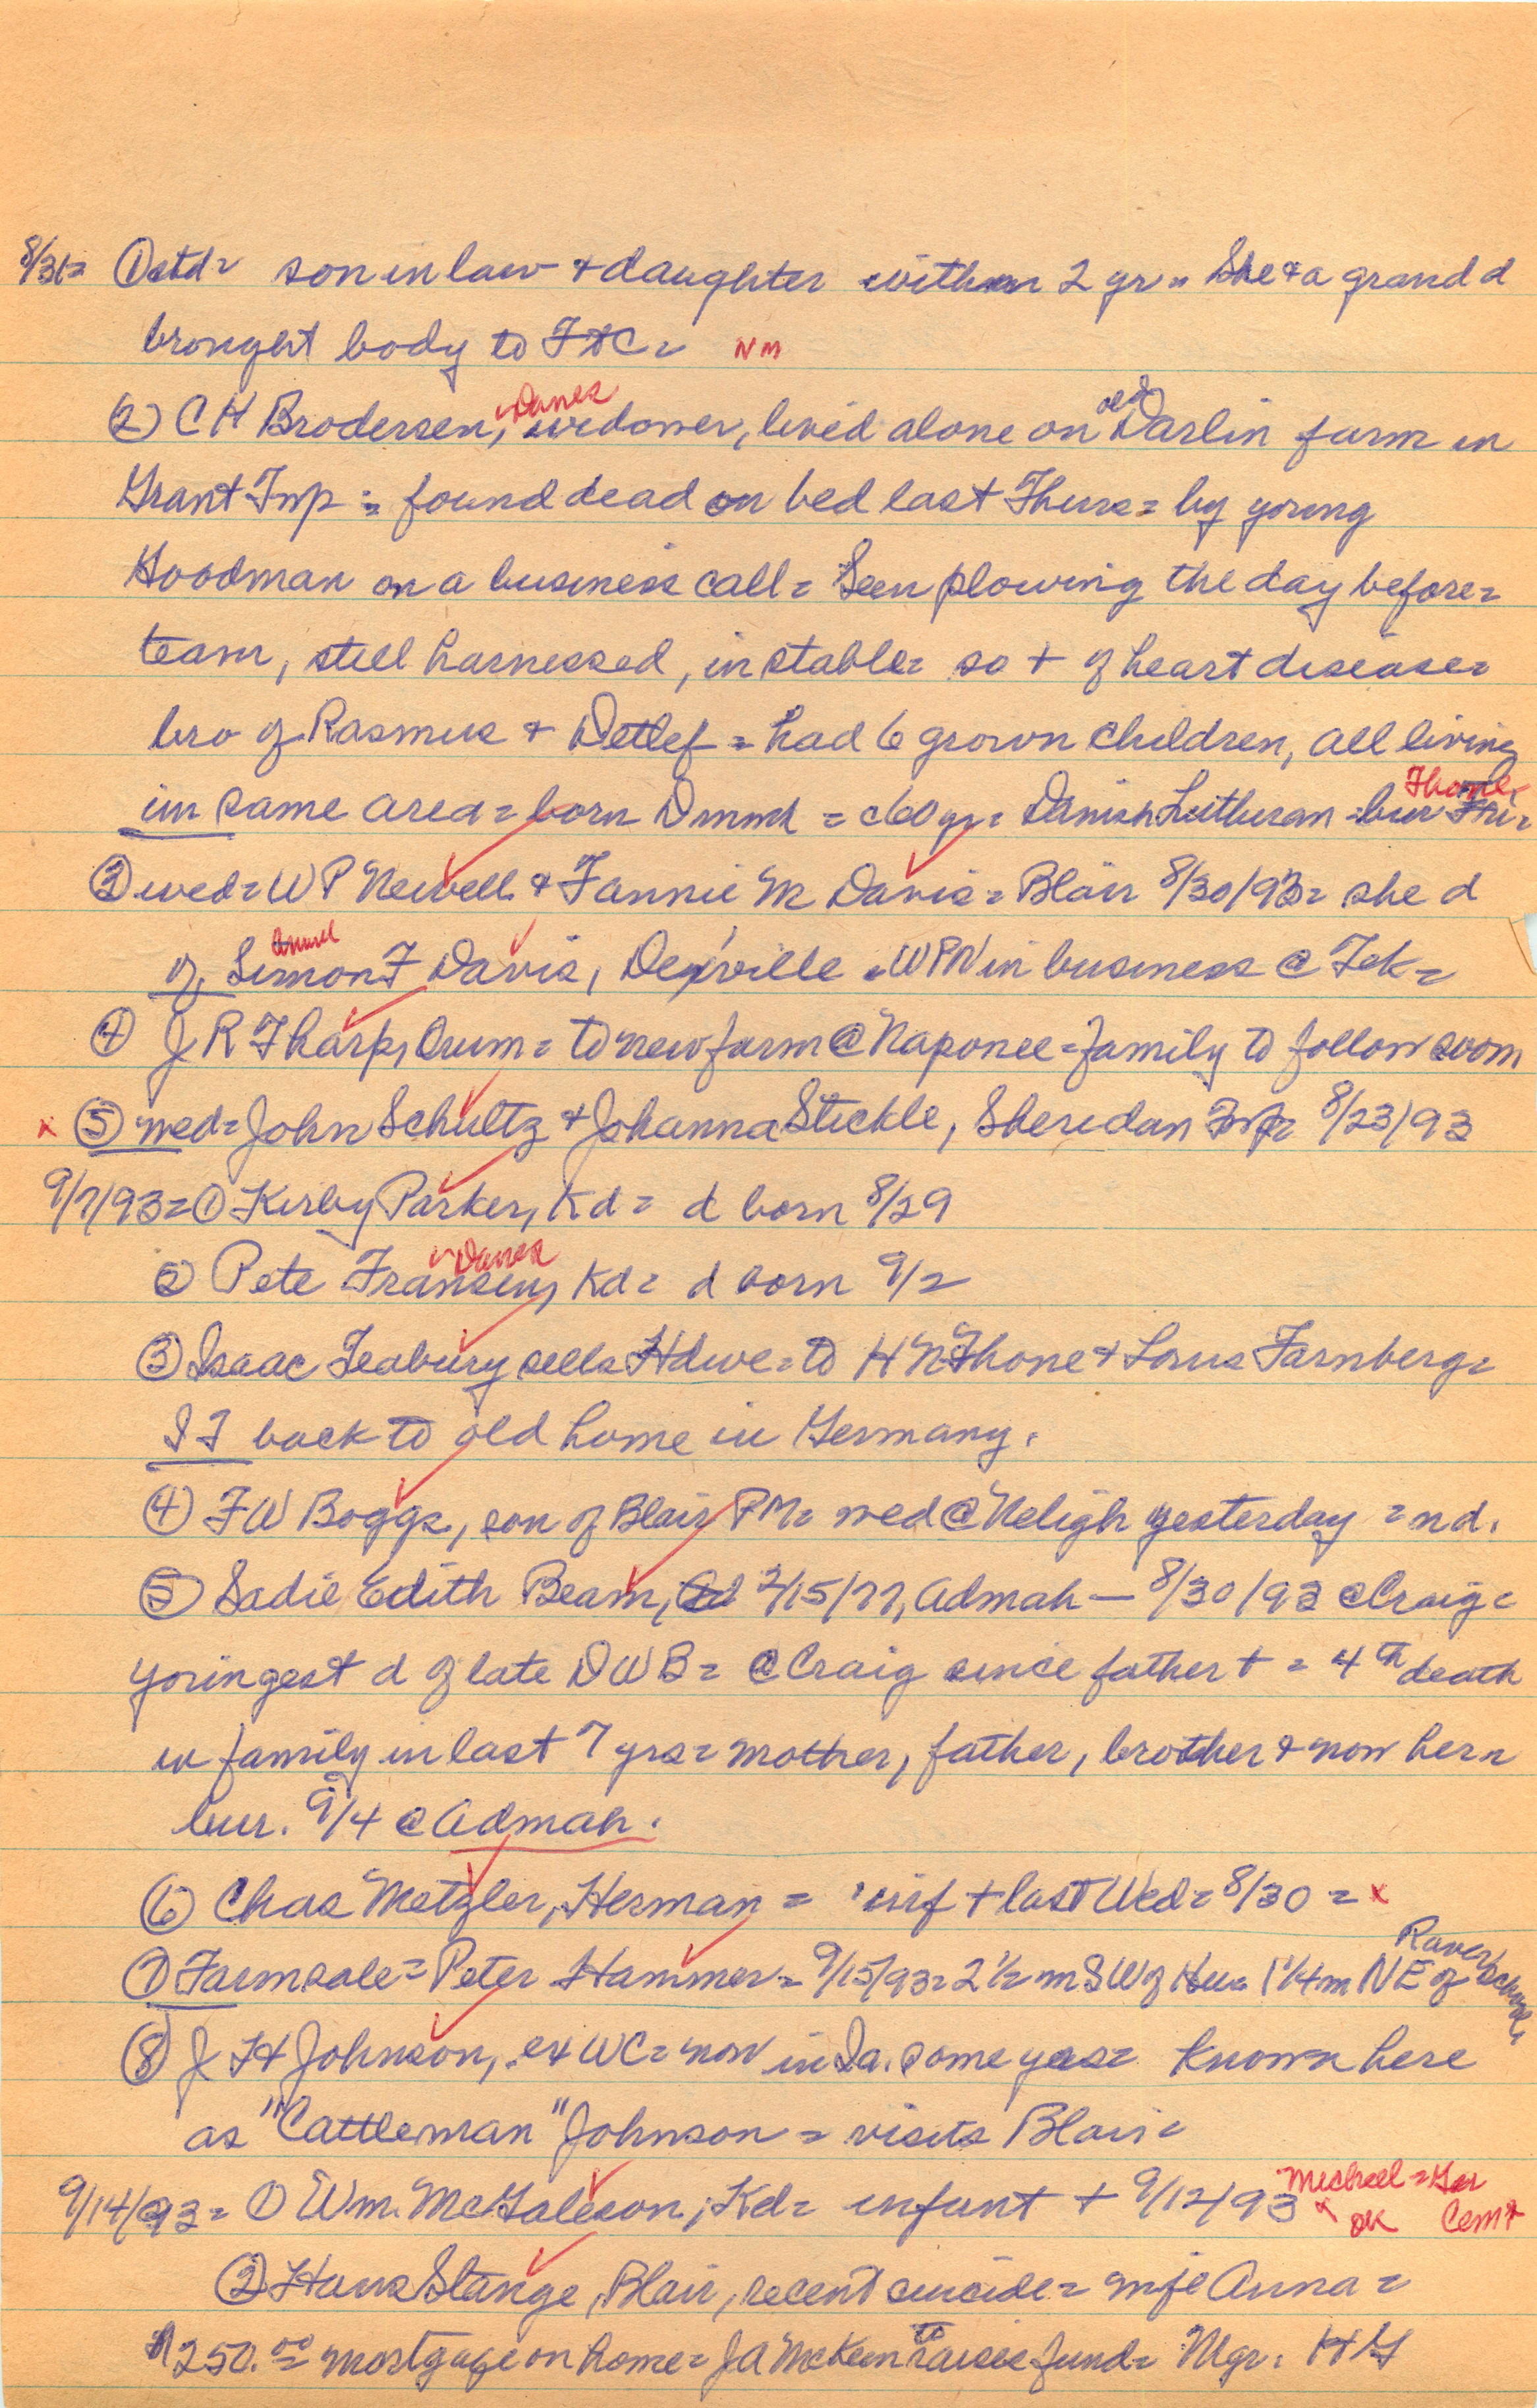 8/31= ① ctd= son in law + daughter within 2 yr= She + a grand d
brought body to Ft C= NM
② C H Brodersen, Danes widower, lived alone on old Darlin farm in
Grant Twp = found dead on bed last Thurs= by young
Goodman on a business call= Seen plowing the day before=
team, still harnessed, in stable= so + of heart disease=
bro of Rasmus + Detlef = had 6 grown children, all living
in same area= born Dnmk = c60 yr= Danish Lutheran =bur Fri=
③ wed= W P Newell + Fannie M Davis= Blair 8/30/93= she d
of Simon F Davis, Dexville =WPN in business @ Tek=
④ J R Tharp, Orum= to new farm @ Naponee=family to follow soon
x ⑤ wed= John Schultz + Johanna Stickle, Sheridan Twp= 8/23/93
9/7/93= ① Kirby Parker, Kd= d born 8/29
② Pete Fransen, Danes Kd= d born 9/2
③ Isaac Teabury sells Hdwe= to H N Thone + Louis Farnberg=
I T back to old home in Germany.
④ F W Boggs, son of Blair PM= wed @ Neligh yesterday = nd.
⑤ Sadie Edith Beam, 2/15/77, Admah — 8/30/93 @ Craig=
youngest d of late D W B= @ Craig since father + = 4th death
in family in last 7 yrs= mother, father, brother + now her=
bur. 9/4 @ Admah.
⑥ Chas Metzler, Herman = inf + last Wed= 8/30 = x
⑦ Farm sale= Peter Hammer= 9/15/93= 2½ m SW of Her= 1¼ m NE of Raver School=
⑧ J H Johnson, ex WC= now in Ia. some yrs= known here
as "Cattleman" Johnson = visits Blair=
9/14/93= ① Wm. McGaleson, Kd= infant + 9/12/93 Micheel = Ger Cemt x OK
② Hans Stange, Blair, recent suicide= wife Anna=
$1250.00= mortgage on home= J A McKeen to raise fund= Mgr. H G